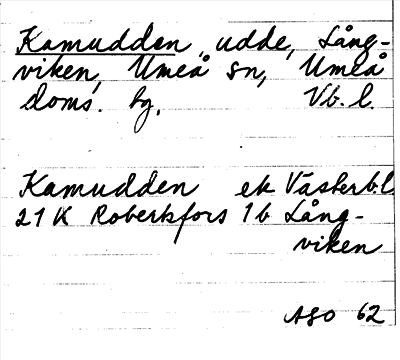 Kamudden, udde, Lång-
viken, Umeå sn, Umeå
doms. hg, Vb. l.
Kamudden ek Västerb.l
21 K Robertsfors 1 b Lång-
viken
ASO 62